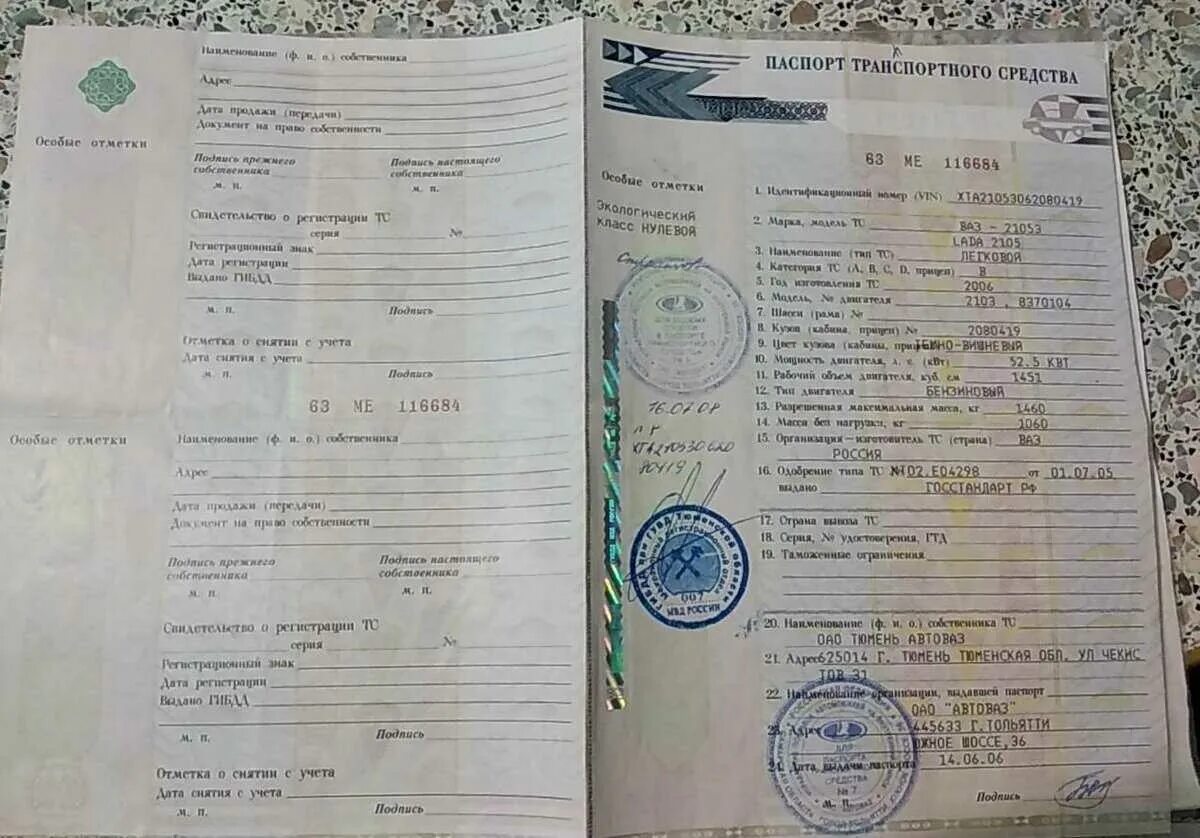 Особые отметки
Наименование (ф. и. о.) собственника
Адрес
Дата продажи (передачи)
Документ на право собственности
Подпись прежнего собственника
Подпись настоящего собственника
м. п.
м. п.
Свидетельство о регистрации ТС
серия №
Регистрационный знак
Дата регистрации
Выдано ГИБДД
м. п. Подпись
Отметка о снятии с учета
Дата снятия с учета
м. п. Подпись
63 МЕ 116684
Особые отметки
Наименование (ф. и. о.) собственника
Адрес
Дата продажи (передачи)
Документ на право собственности
Подпись прежнего собственника
Подпись настоящего собственника
м. п.
м. п.
Свидетельство о регистрации ТС
серия №
Регистрационный знак
Дата регистрации
Выдано ГИБДД
м. п. Подпись
Отметка о снятии с учета
Дата снятия с учета
м. п. Подпись
ПАСПОРТ ТРАНСПОРТНОГО СРЕДСТВА
63 МЕ 116684
Особые отметки
Экологический
класс НУЛЕВОЙ
16.07.08
ГИБДД при ГУВД Тюменской области
007
МВД РОССИИ
1. Идентификационный номер (VIN) XTA21053062080419
2. Марка, модель ТС ВАЗ - 21053
LADA 2105
3. Наименование (тип ТС) ЛЕГКОВОЙ
4. Категория ТС (А, В, С, D, прицеп) В
5. Год изготовления ТС 2006
6. Модель, № двигателя 2103 , 8370104
7. Шасси (рама) №
8. Кузов (кабина, прицеп) № 2080419
9. Цвет кузова (кабины, прицепа) ТЕМНО-ВИШНЕВЫЙ
10. Мощность двигателя, л. с. (кВт) 52.5 КВТ
11. Рабочий объем двигателя, куб. см 1451
12. Тип двигателя БЕНЗИНОВЫЙ
13. Разрешенная максимальная масса, кг 1460
14. Масса без нагрузки, кг 1060
15. Организация-изготовитель ТС (страна) ВАЗ
РОССИЯ
16. Одобрение типа ТС № Т02.Е04298 от 01.07.05
выдано ГОССТАНДАРТ РФ
17. Страна вывоза ТС
18. Серия, № удостоверения, ГТД
19. Таможенные ограничения
20. Наименование (ф. и. о.) собственника ТС
ОАО ТЮМЕНЬ АВТОВАЗ
21. Адрес 625014 Г. ТЮМЕНЬ ТЮМЕНСКАЯ ОБЛ. УЛ ЧЕКИС
ТОВ 31
22. Наименование организации, выдавшей паспорт
ОАО "АВТОВАЗ"
23. Адрес 445633 Г.ТОЛЬЯТТИ
ЮЖНОЕ ШОССЕ,36
24. Дата выдачи паспорта 14.06.06
ДЛЯ
ПАСПОРТА
СРЕДСТВА
№ 7
М. П.
Подпись